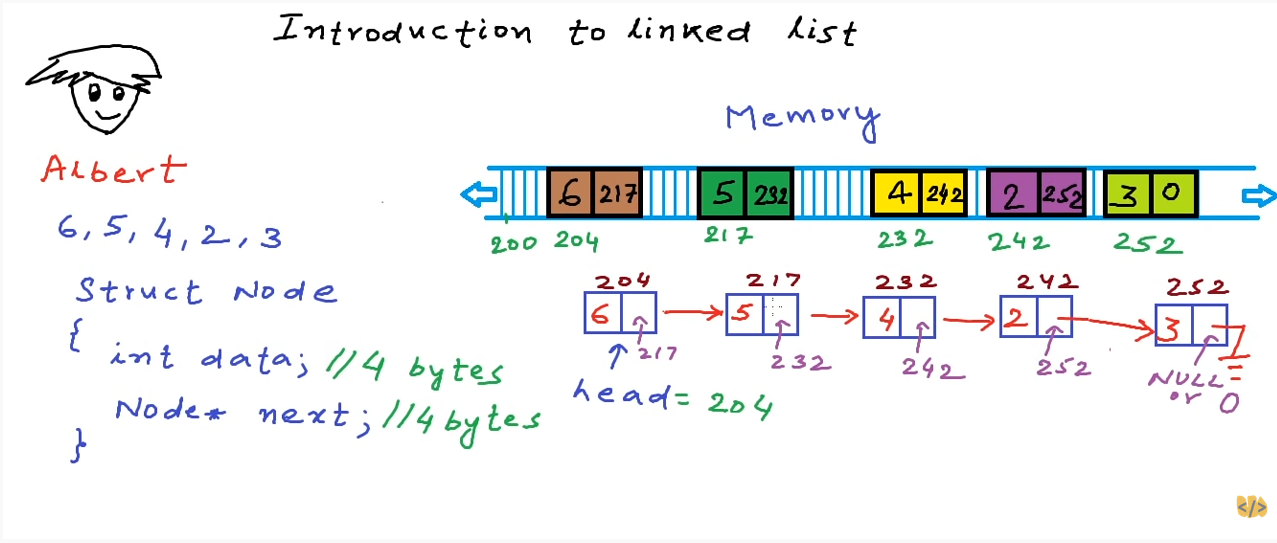 Introduction to linked list
Albert
6, 5, 4, 2, 3
Struct Node
{
int data; //4 bytes
Node* next; //4 bytes
}
Memory
6 217 5 232 4 242 2 252 3 0
200 204 217 232 242 252
204 217 232 242 252
6 5 4 2 3
217 232 242 252 NULL
or 0
head = 204
</>